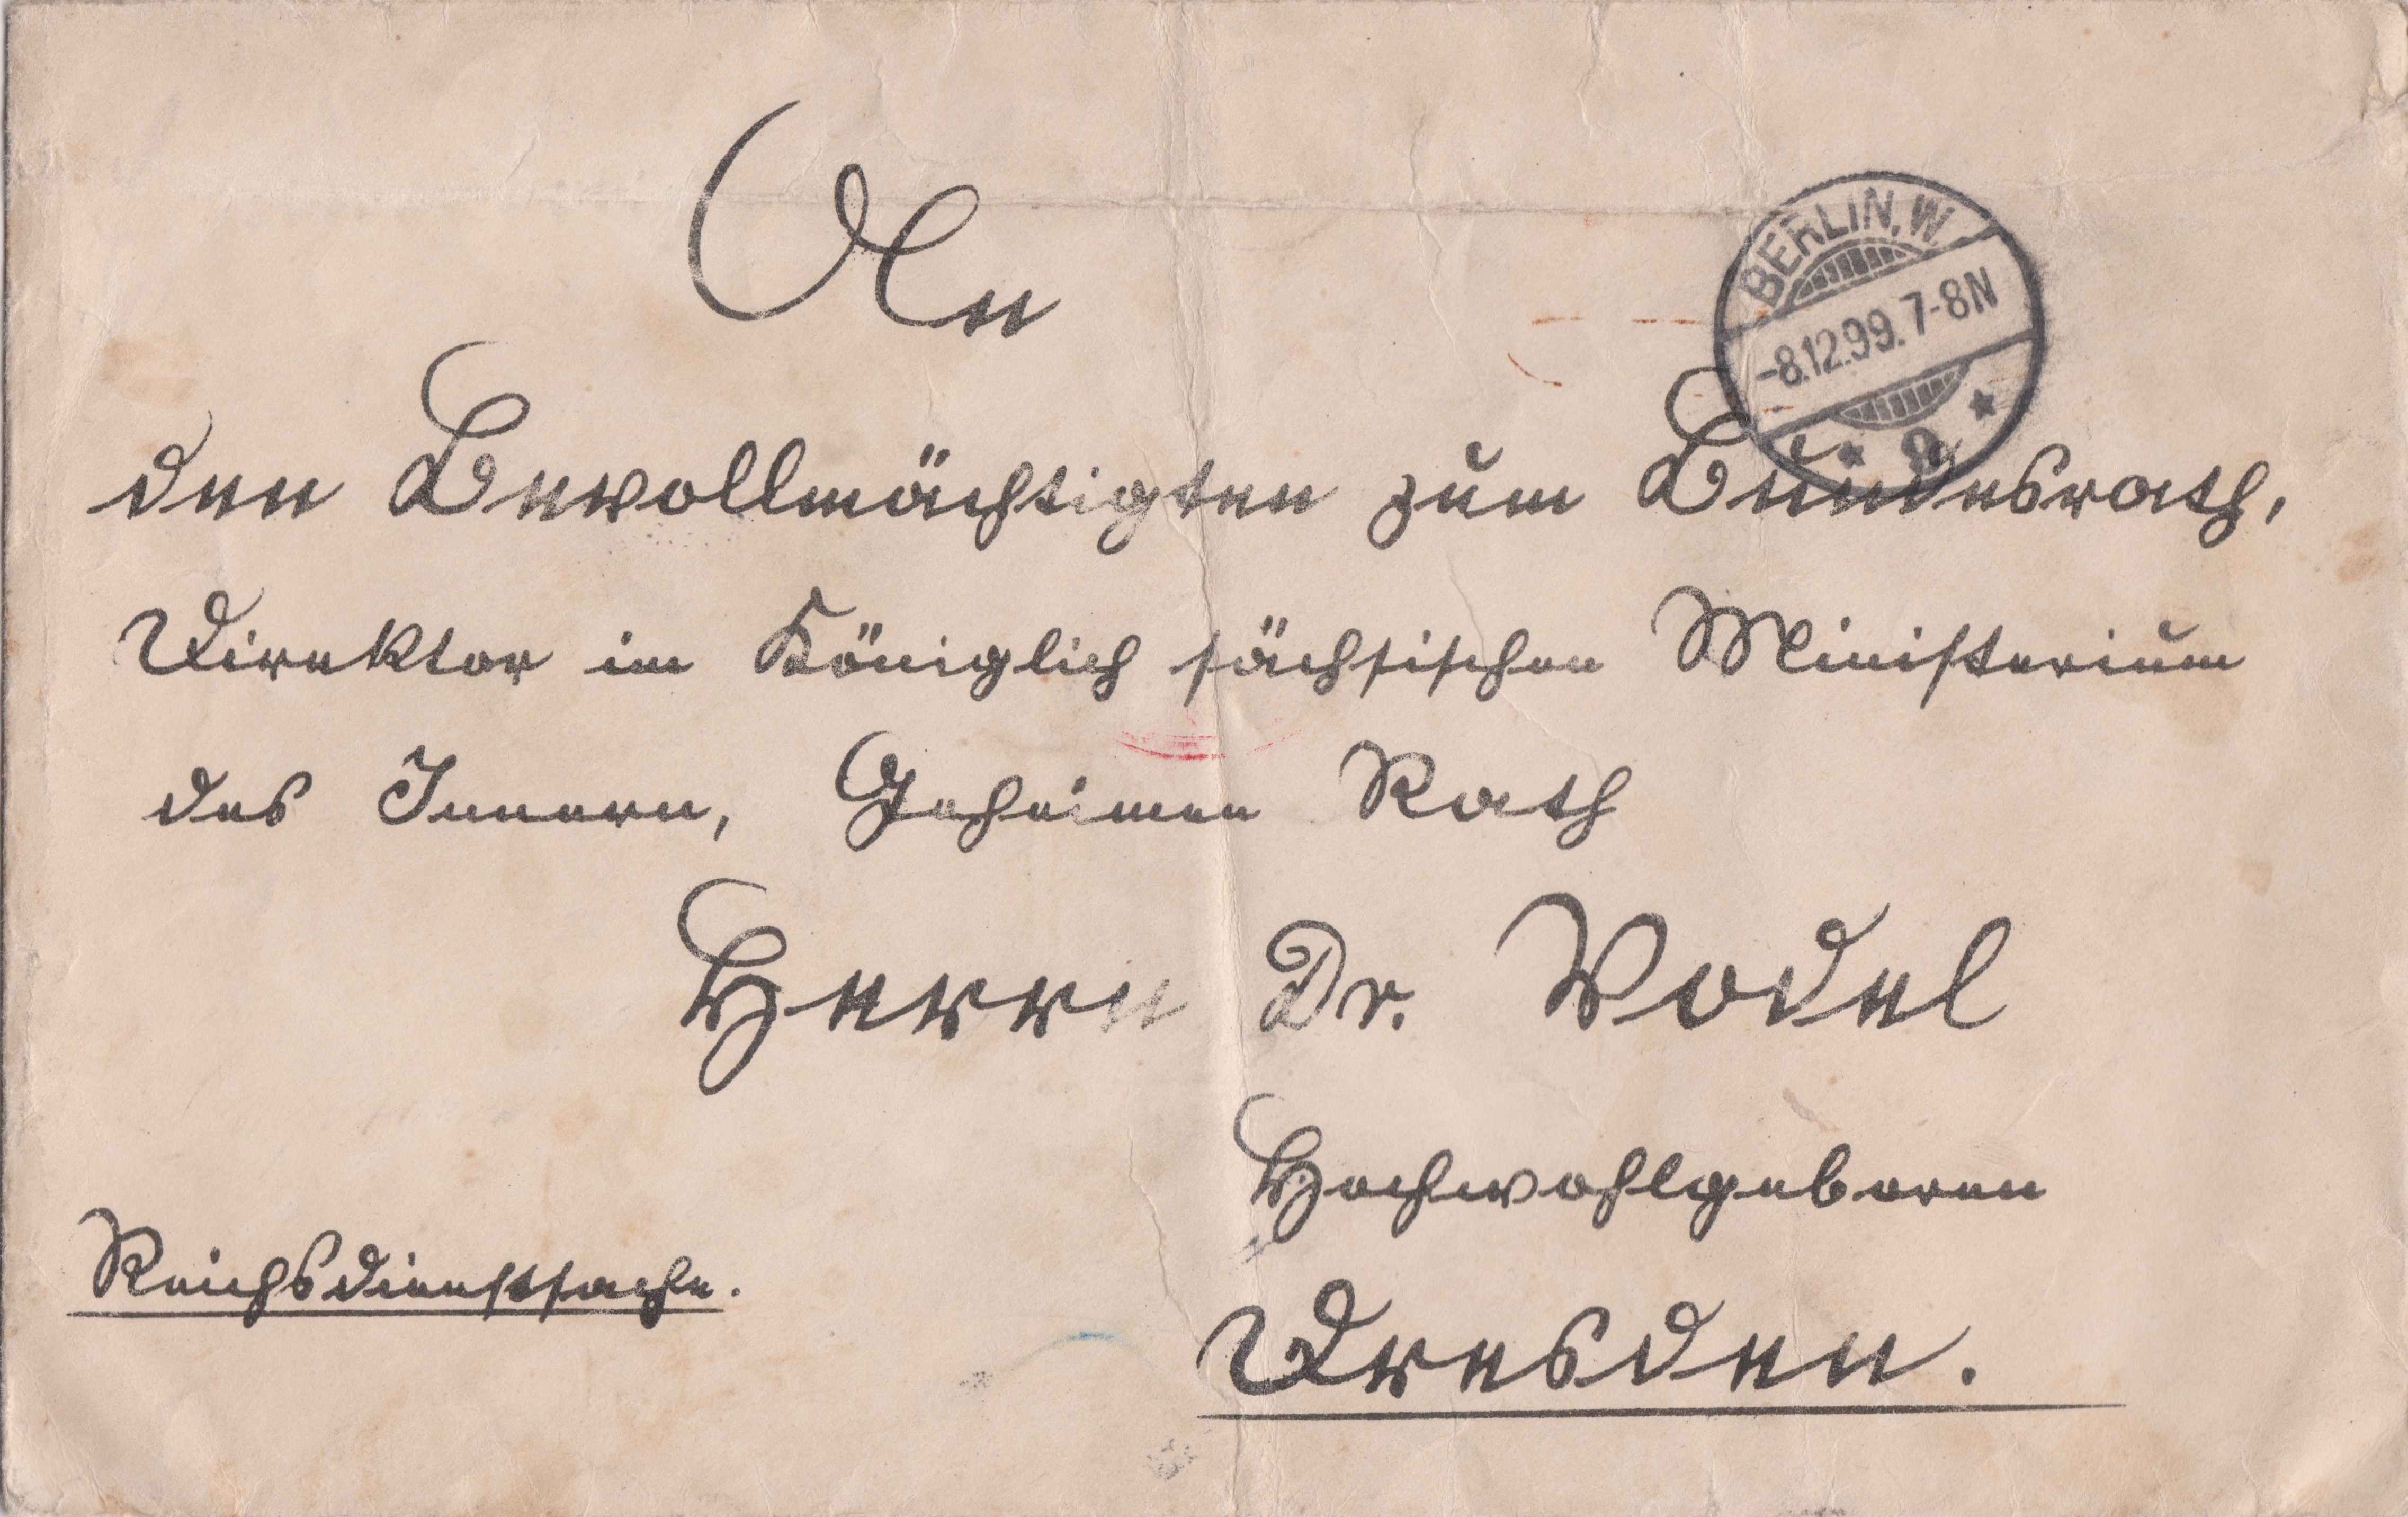 An
BERLIN, W.
-8.12.99. 7-8N
* 9 *
den Bevollmächtigten zum Bundesrath,
Direktor im Königlich sächsischen Ministerium
des Innern, Geheimen Rath
Herrn Dr. Vodel
Hochwohlgeboren
Reichsdienstsache.
Dresden.